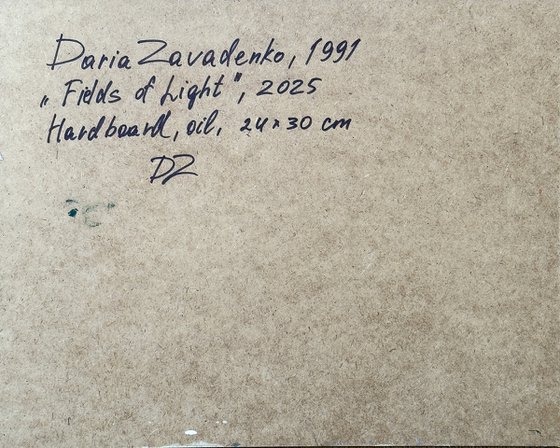 Daria Zavadenko, 1991
„Fields of Light", 2025
Hardboard, oil, 24×30 cm
DZ